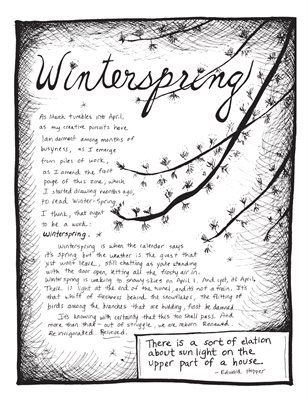 Winterspring
As March tumbles into April,
as my creative pursuits have
lain dormant among months of
business, as I emerge
from piles of work,
as I amend the front
page of this zine, which
I started drawing months ago,
to read Winter-Spring.
I think, that ought
to be a word:
Winterspring.
Winterspring is when the calendar says
it's spring but the weather is the guest that
just won't leave, still chatting as you're standing
with the door open, letting all the frosty air in.
Winterspring is waking to snowy skies on April 1. And yet, it's April.
There is light at the end of the tunnel, and it's not a train. It's
that whiff of freshness behind the snowflakes, the flitting of
birds among the branches that are budding, first be damned.
It's knowing with certainty that this too shall pass. And
more than that - out of struggle, we are reborn. Renewed.
Reinvigorated. Relieved.
There is a sort of elation
about sunlight on the
upper part of a house.
- Edward Hopper